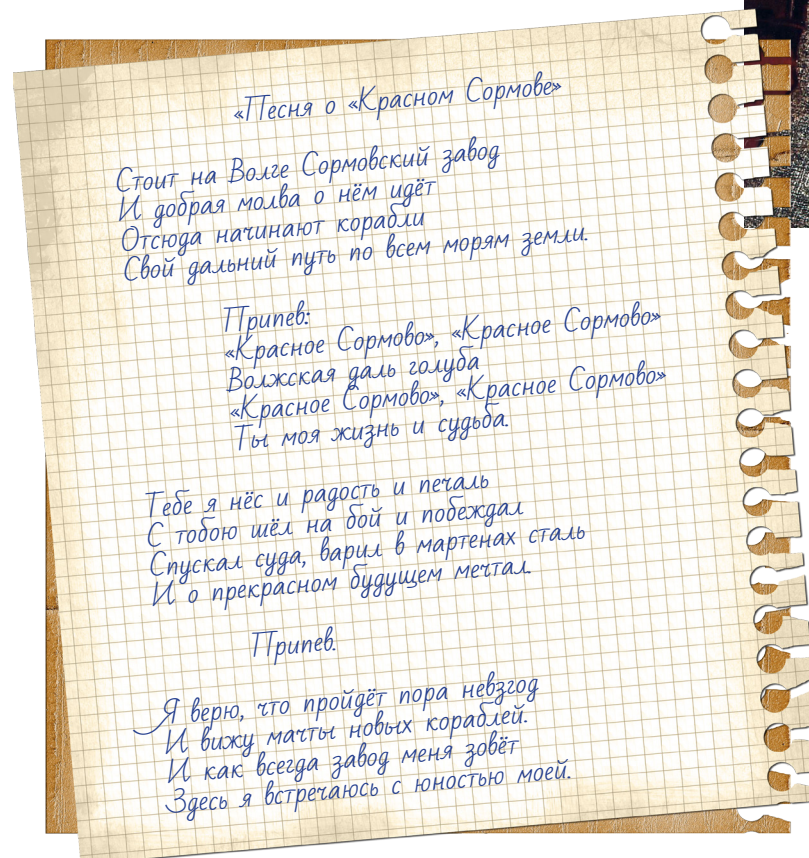 «Песня о «Красном Сормове»
Стоит на Волге Сормовский завод
И добрая молва о нём идёт
Отсюда начинают корабли
Свой дальний путь по всем морям земли.
Припев:
«Красное Сормово», «Красное Сормово»
Волжская даль голуба
«Красное Сормово», «Красное Сормово»
Ты моя жизнь и судьба.
Тебе я нёс и радость и печаль
С тобою шёл на бой и побеждал
Спускал суда, варил в мартенах сталь
И о прекрасном будущем мечтал.
Припев.
Я верю, что пройдёт пора невзгод
И вижу мачты новых кораблей.
И как всегда завод меня зовёт
Здесь я встречаюсь с юностью моей.